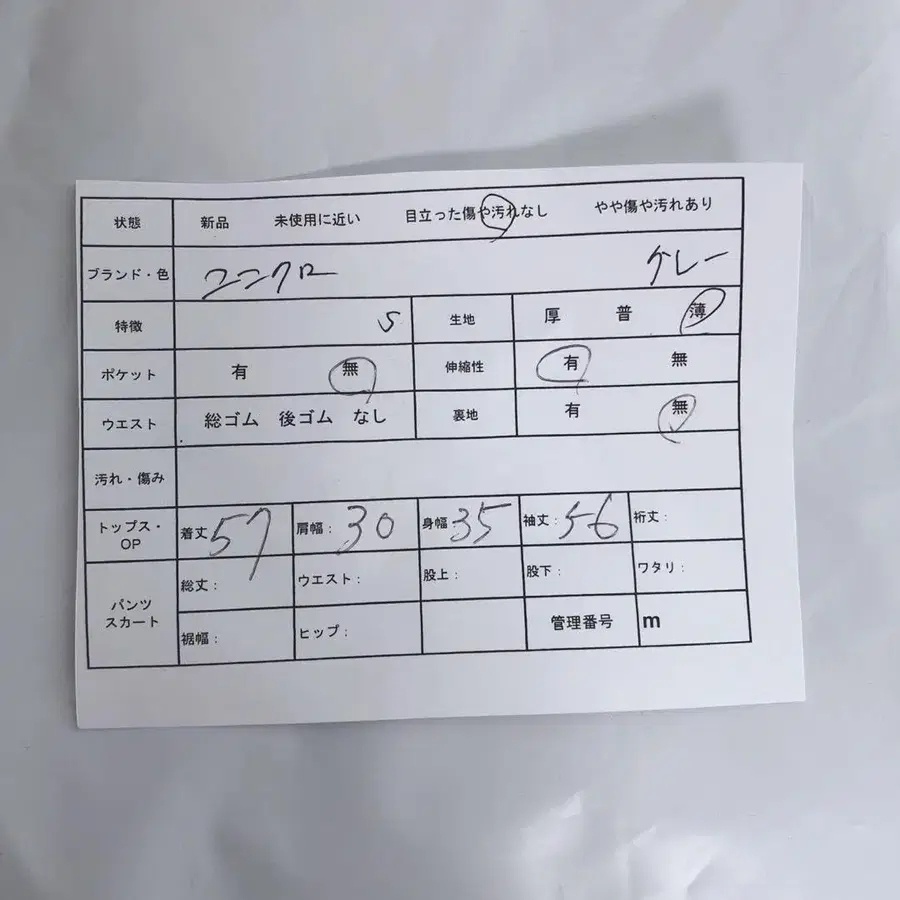 状態 新品 未使用に近い 目立った傷や汚れなし やや傷や汚れあり
ブランド・色 ユニクロ グレー
特徴 S 生地 厚 普 薄
ポケット 有 無 伸縮性 有 無
ウエスト 総ゴム 後ゴム なし 裏地 有 無
汚れ・傷み
トップス・OP 着丈 57 肩幅: 30 身幅 35 袖丈: 56 裄丈:
パンツ スカート 総丈: ウエスト: 股上: 股下: ワタリ:
裾幅: ヒップ: 管理番号 m